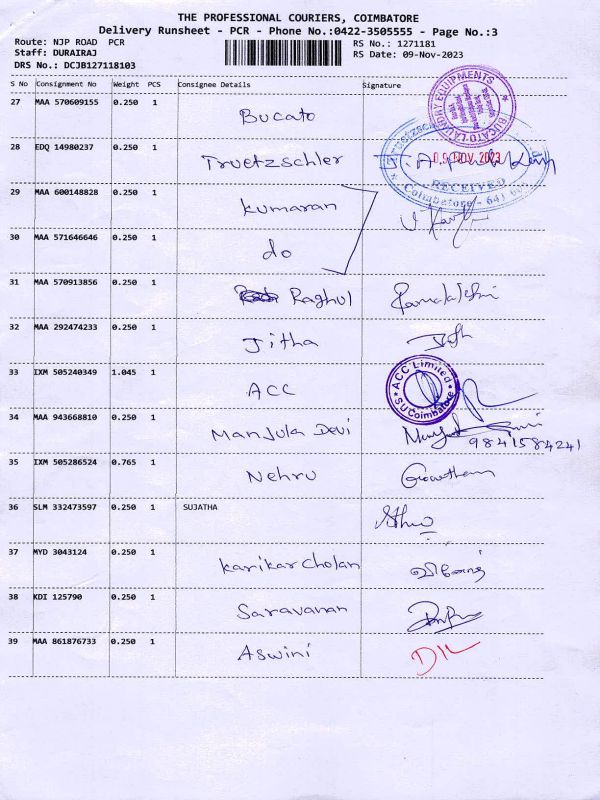 THE PROFESSIONAL COURIERS, COIMBATORE
Delivery Runsheet - PCR - Phone No.:0422-3505555 - Page No.:3
Route: NJP ROAD PCR
Staff: DURAIRAJ
DRS No.: DCJB127118103
RS No.: 1271181
RS Date: 09-Nov-2023
S No Consignment No Weight PCS Consignee Details Signature
27 MAA 570609155 0.250 1 Bucato
BUCATO LAUNDRY EQUIPMENTS
28 EDQ 14980237 0.250 1 Truetzschler
09 NOV 2023
RECEIVED
Coimbatore - 641
29 MAA 600148828 0.250 1 Kumaran
30 MAA 571646646 0.250 1 do
31 MAA 570913856 0.250 1 Raghul
32 MAA 292474233 0.250 1 Jitha
33 IXM 505240349 1.045 1 ACC
ACC Limited
SU Coimbatore
34 MAA 943668810 0.250 1 Manjula Devi
9841584241
35 IXM 505286524 0.765 1 Nehru Gowtham
36 SLM 332473597 0.250 1 SUJATHA
37 MYD 3043124 0.250 1 Karikar cholan
38 KDI 125790 0.250 1 Saravanan
39 MAA 861876733 0.250 1 Aswini